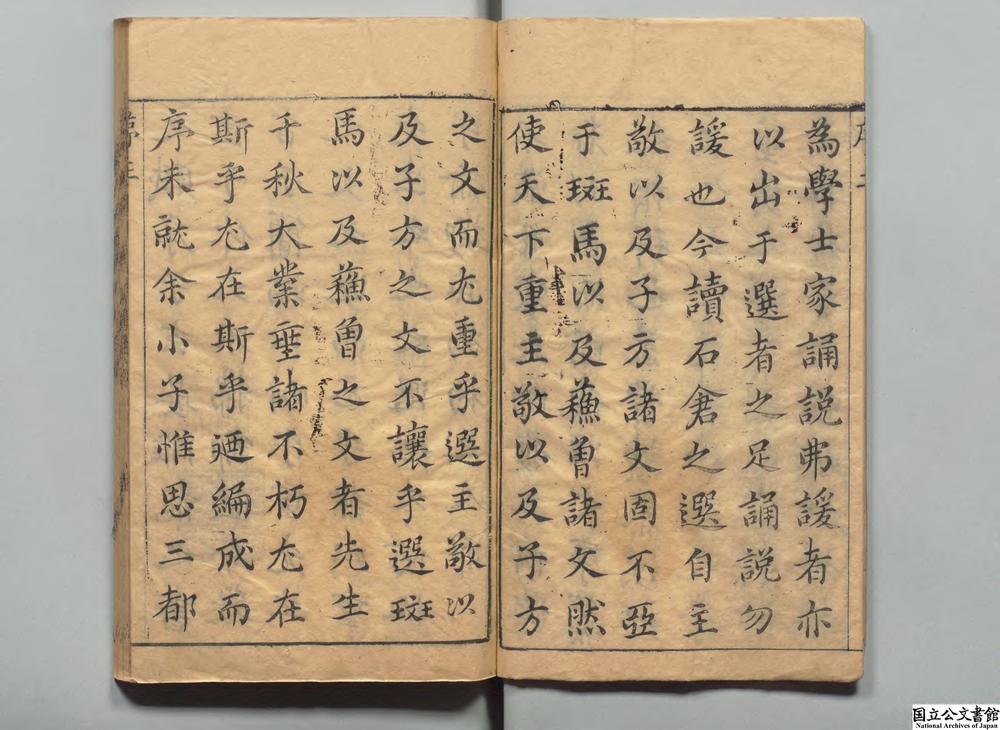 為學士家誦説弗諼者亦
以出于選者之足誦説勿
諼也今讀石倉之選自主
敬以及子方諸文固不亞
于班馬以及蘓曾諸文然
使天下重主敬以及子方
之文而尢重乎選主敬以
及子方之文不讓乎選班
馬以及蘓曾之文者先生
千秋大業垂諸不朽尢在
斯乎尢在斯乎廼編成而
序未就余小子惟思三都
国立公文書館
National Archives of Japan